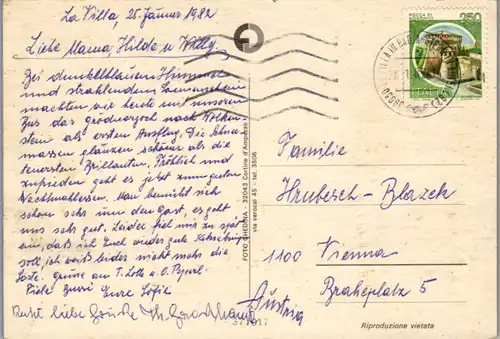 La Villa, 25. Jänner 1982
Liebe Mama, Hilde u Willy,
Bei dunkelblauem Himmel
und strahlendem Sonnenschein
machten wir heute mit unserem
Bus das Grödnerjoch nach
stein als ersten Ausflug. Die Schnee-
massen glänzen schöner als die
teuersten Brillanten. Fröhlich und
zufrieden geht es jetzt zum guten
Nachtmahlessen. Man bemüht sich
schon sehr um den Gast, es geht
uns sehr gut. Leider fiel mir zu spät
ein, daß ich Euch wieder gute
soll, ich weiß leider nicht mehr die
Sorte. Grüße an T. Lotte u. O. Poperl.
Viele Bussi Eure Sofie
liebe Grüße
FOTO GHEDINA - 32043 Cortina d'Ampezzo
via verocai 45 - tel. 3506
ROCCA DI
250
ITALIA
Familie
Hrubesch-Blazek
1100 Vienna
Braheplatz 5
Austria
Riproduzione vietata